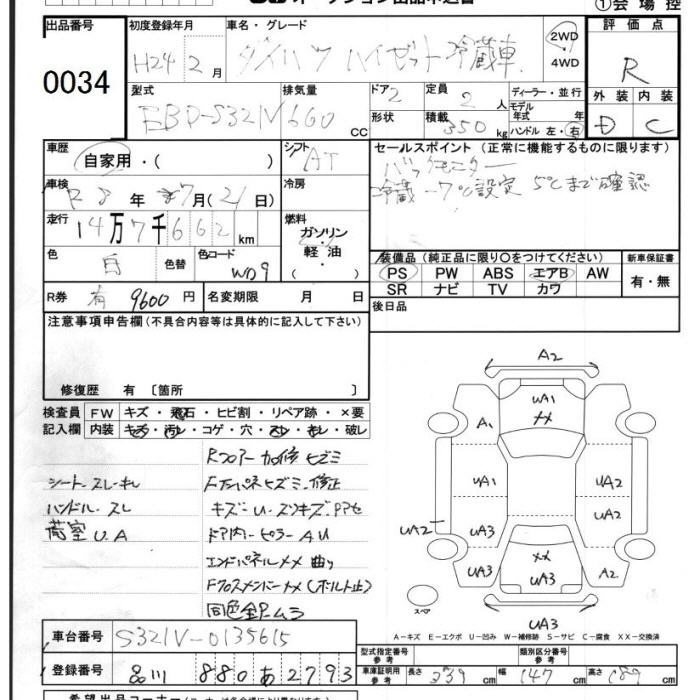 オークション出品申込書 ①会場控
出品番号 初度登録年月 車名・グレード 評価点
0034 H24年2月 ダイハツ ハイゼット 冷蔵車 2WD 4WD R
型式 排気量 ドア 定員 ディーラー・並行 外装 内装
EBD-S321V 660 CC 2 2人 モデル年式 年 D C
形状 積載 350kg ハンドル 左・右
車歴 自家用・( ) シフト AT セールスポイント (正常に機能するものに限ります)
バックモニター
冷蔵 -7℃設定 5℃まで確認
車検 R8年7月(21)日 冷房
走行 14万7千662km 燃料 ガソリン・軽油・( )
色 白 色替 色コード W09
装備品 (純正品に限り○をつけてください) 新車保証書
PS PW ABS エアB AW 有・無
SR ナビ TV カワ
R券 有 9600円 名変期限 月 日 後日品
注意事項申告欄 (不具合内容等は具体的に記入して下さい)
修復歴 有 〔箇所 〕
検査員 FW キズ・飛石・ヒビ割・リペア跡・×要
記入欄 内装 キズ・汚レ・コゲ・穴・スレ・キレ・破レ
Rフロアー加修ヒズミ
シート スレ・キレ Fパネヒズミ・修正
ハンドル スレ キズ・U・スソキズPアセ
荷室 U.A ドア内・ピラー AU
エンドパネルメメ 曲り
Fクロスメンバーナメ(ボルト止)
同色全P.ムラ
A2
UA1
××
A1
UA1 UA2
UA2
UA2 UA3
××
UA3 UA3 A2
スペア
UA3
A-キズ E-エクボ U-凹み W-補修跡 S-サビ C-腐食 XX-交換済
車台番号 S321V-0135615
型式指定番号 参考 類別区分番号 参考
登録番号 品川 880 あ 2793
車庫証明用 参考 長さ 339cm 幅 147cm 高さ 189cm
希望出品コーナー